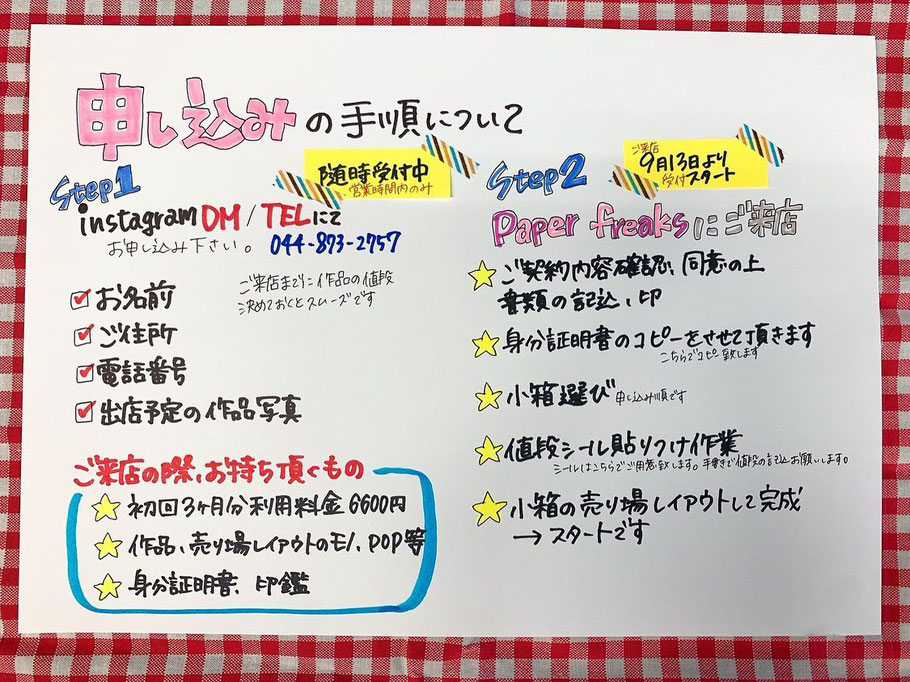 申し込みの手順について
Step1
随時受付中
営業時間内のみ
instagram DM/TELにて
お申し込み下さい。 044-873-2757
ご来店までに作品の値段
決めておくとスムーズです
お名前
ご住所
電話番号
出店予定の作品写真
ご来店の際、お持ち頂くもの
初回3ヶ月分利用料金6600円
作品、売り場レイアウトのモノ、POP等
身分証明書、印鑑
Step2
ご来店
9月13日より
受付スタート
Paper freaksにご来店
ご契約内容確認、同意の上
書類の記込、印
身分証明書のコピーをさせて頂きます
こちらでコピー致します
小箱選び 申し込み順です
値段シール貼りつけ作業
シールはこちらでご用意致します。手書きで値段の記込お願いします。
小箱の売り場レイアウトして完成
→スタートです